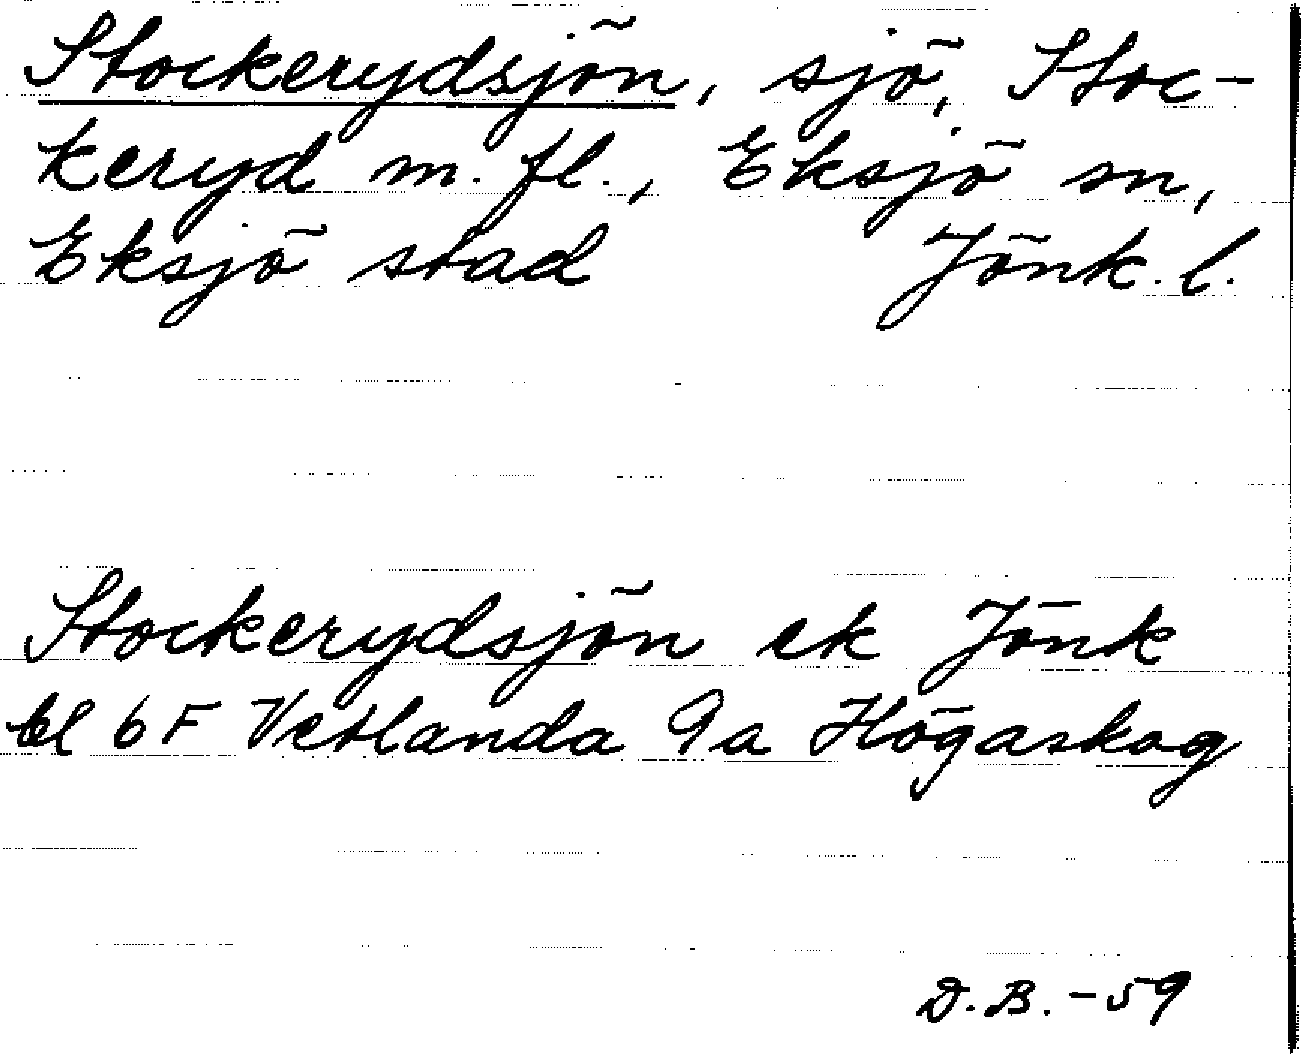 Stockerydsjön, sjö, Stoc-
keryd m. fl., Eksjö sn,
Eksjö stad Jönk. l.
Stockerydsjön ek Jönk
bl 6F Vetlanda 9a Högaskog
D.B. -59